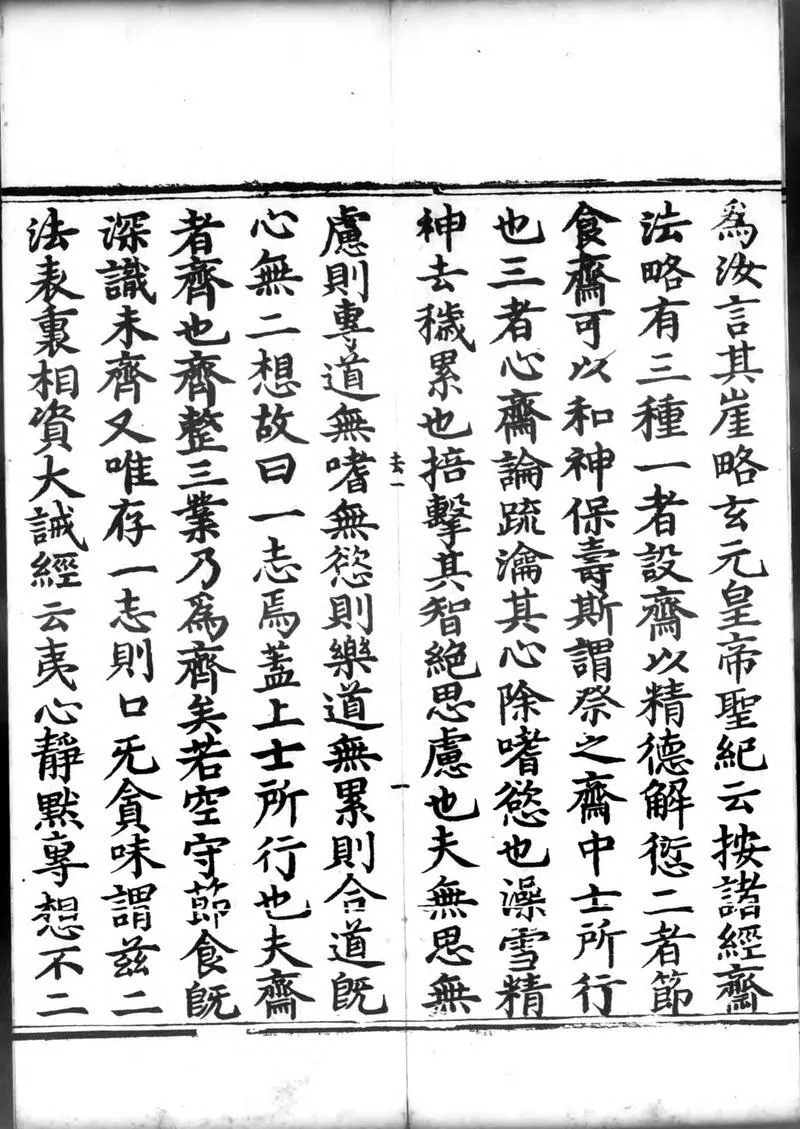 爲汝言其崖略玄元皇帝聖紀云按諸經齋
法略有三種一者設齋以精德解愆二者節
食齋可以和神保壽斯謂祭之齋中士所行
也三者心齋論疏瀹其心除嗜慾也澡雪精
神去穢累也掊擊其智絕思慮也夫無思無
去一
一
慮則專道無嗜無慾則樂道無累則合道旣
心無二想故曰一志焉蓋上士所行也夫齋
者齊也齊整三業乃爲齊矣若空守節食旣
深識未齊又唯存一志則口旡貪味謂茲二
法表裏相資大誡經云夷心靜默專想不二